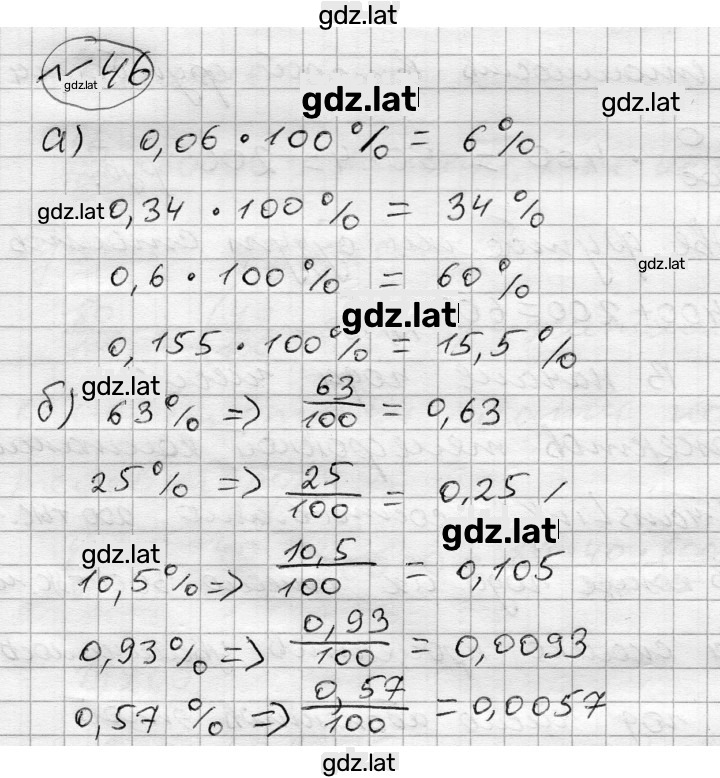 gdz.lat
№ 46
gdz.lat
gdz.lat
gdz.lat
а) 0,06 • 100 % = 6 %
gdz.lat 0,34 • 100 % = 34 %
0,6 • 100 % = 60 %
gdz.lat
gdz.lat
0,155 • 100 % = 15,5 %
gdz.lat
б) 63 % => 63/100 = 0,63
25 % => 25/100 = 0,25
gdz.lat
gdz.lat
10,5 % => 10,5/100 = 0,105
0,93 % => 0,93/100 = 0,0093
0,57 % => 0,57/100 = 0,0057
gdz.lat